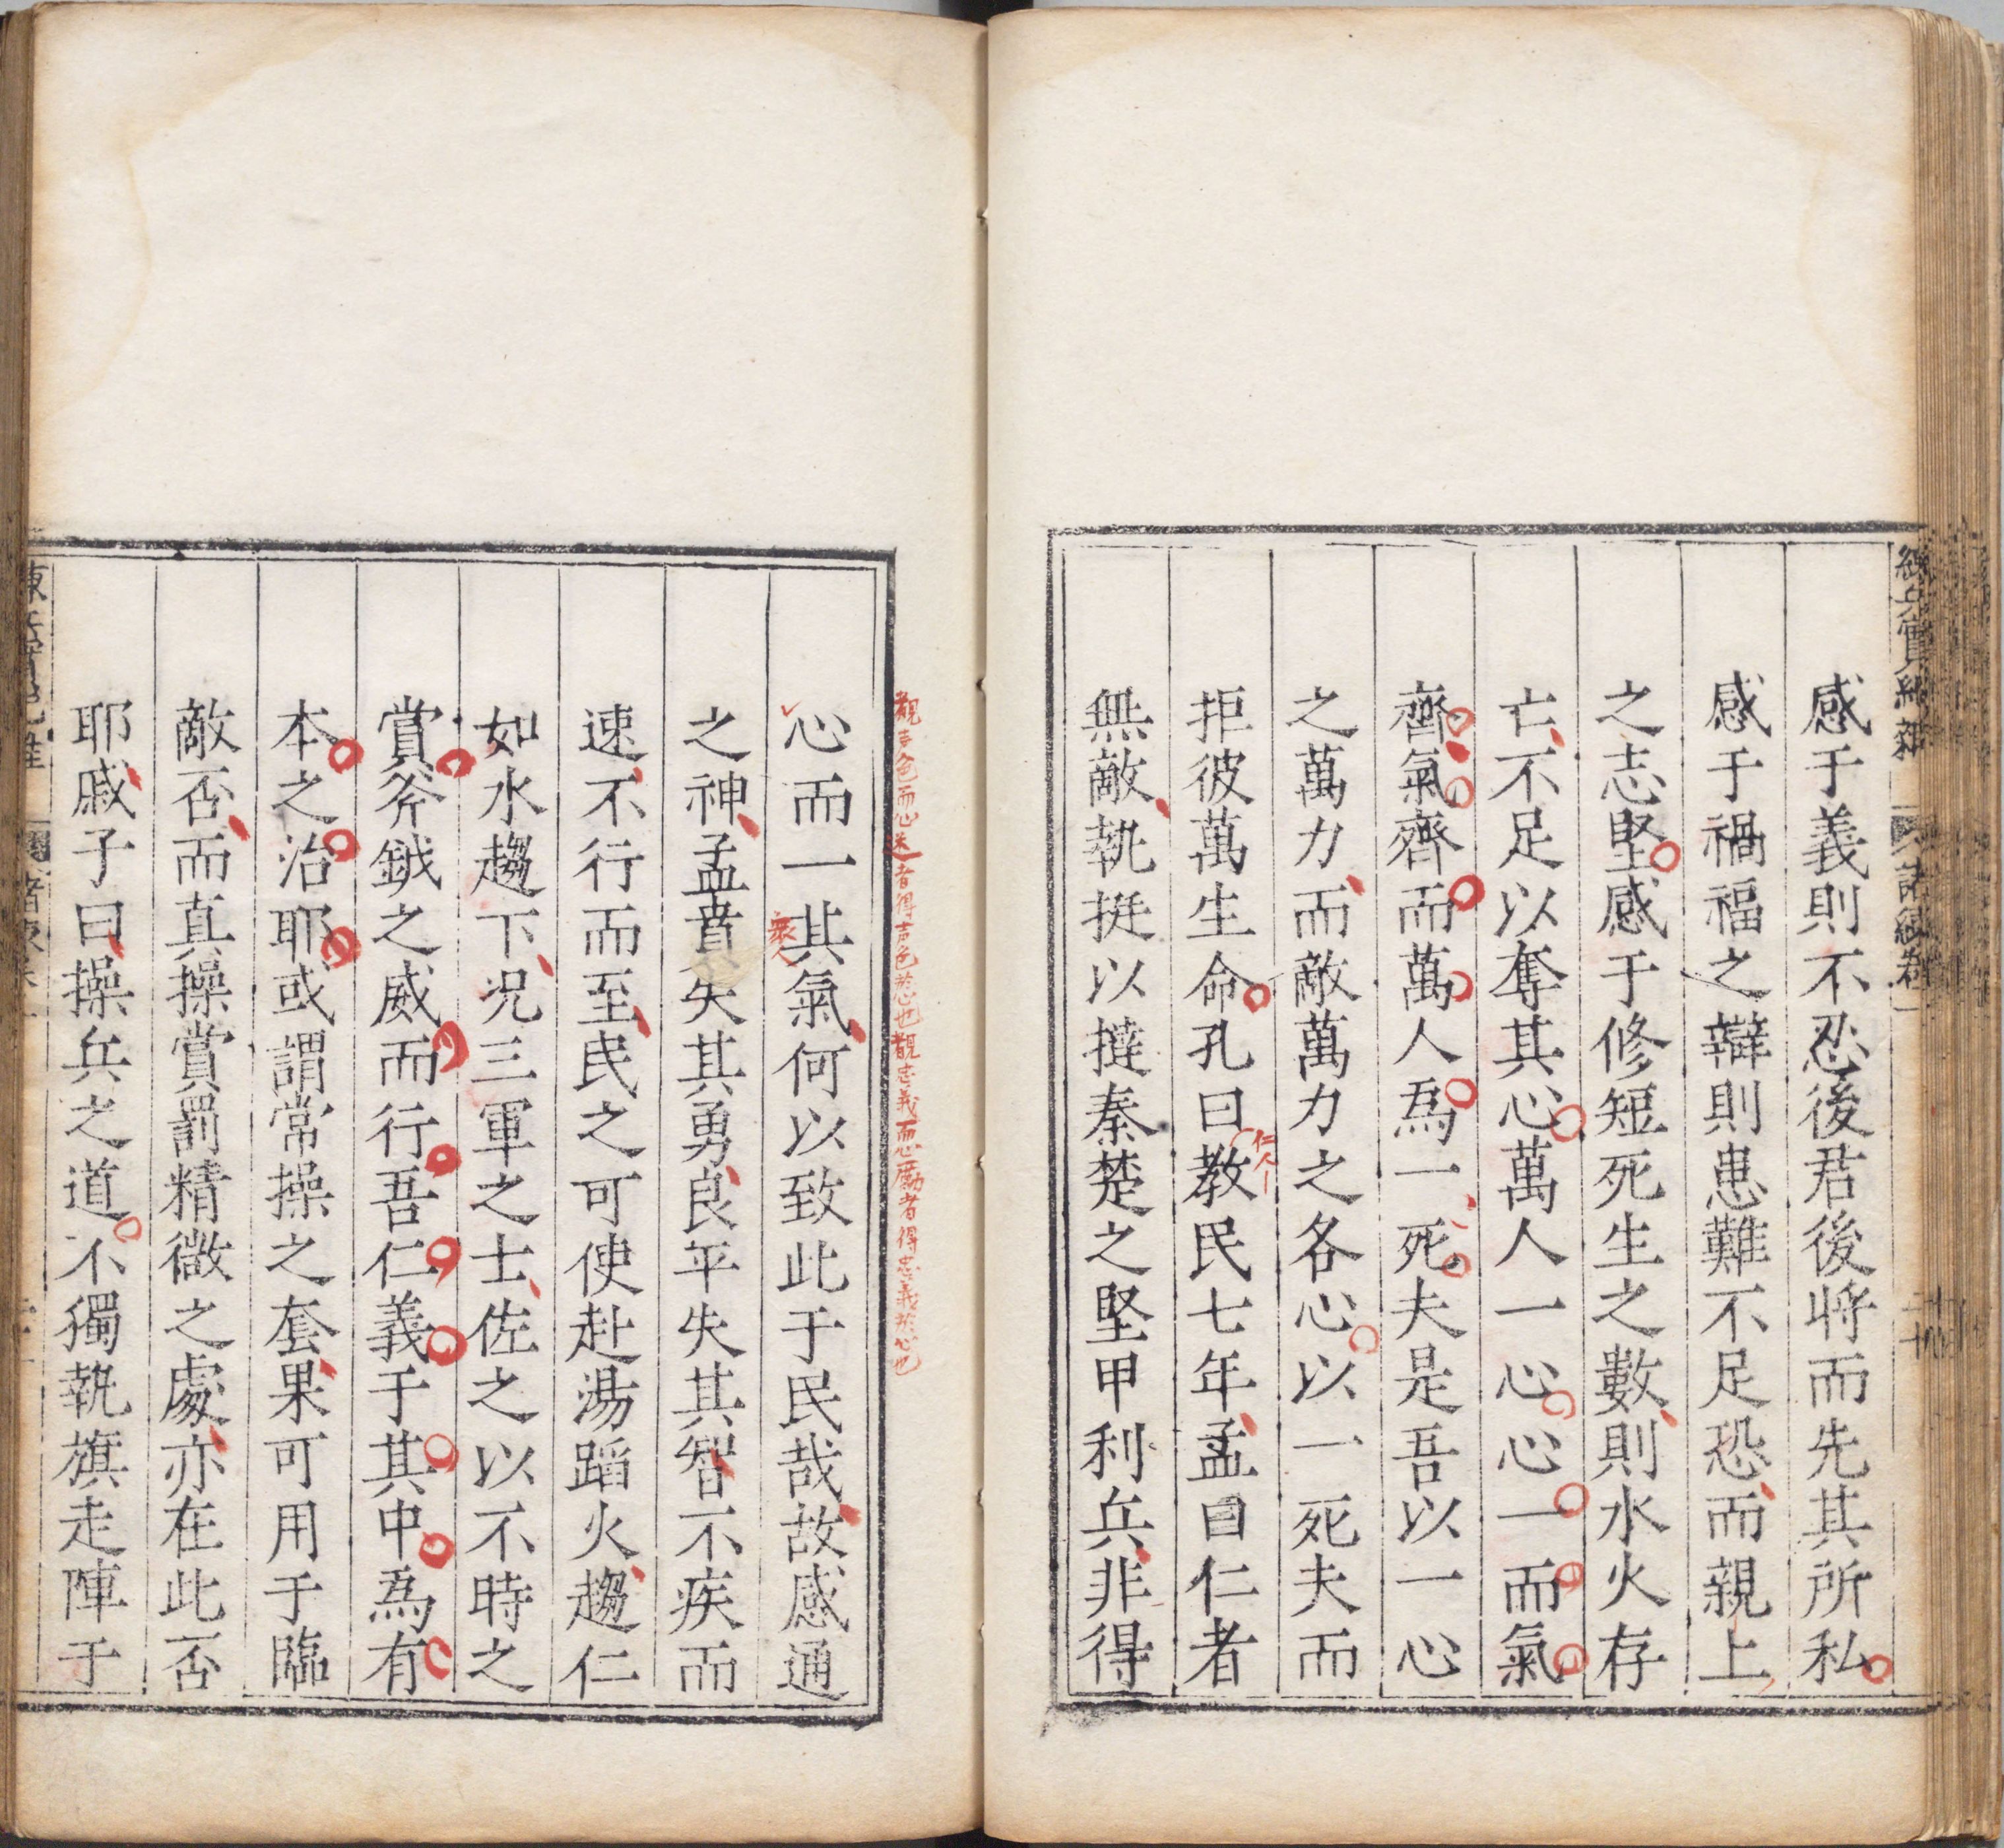 感于義則不忍後君後将而先其所私
感于禍福之辯則患難不足恐而親上
之志堅感于修短死生之數則水火存
亡不足以奪其心萬人一心心一而氣
齊氣齊而萬人爲一死夫是吾以一心
之萬力而敵萬力之各心以一死夫而
拒彼萬生命孔曰教民七年孟曰仁者
仁人
無敵執挺以撻秦楚之堅甲利兵非得
觀声色而心迷者得声色於心也觀忠義而心勵者得忠義於心也
心而一其氣何以致此于民哉故感通
衆人
之神孟賁失其勇良平失其智不疾而
速不行而至民之可使赴湯蹈火趨仁
如水趨下况三軍之士佐之以不時之
賞斧鉞之威而行吾仁義于其中爲有
本之治耶或謂常操之套果可用于臨
敵否而真操賞罰精微之處亦在此否
耶戚子曰操兵之道不獨執旗走陣于